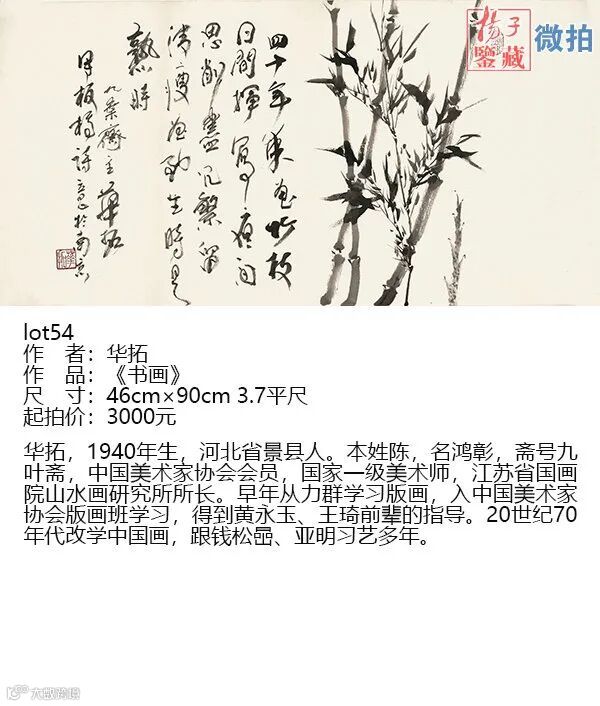 四十年来画竹枝
日间挥写夜间
思削尽冗繁留
清瘦画到生时是
熟时
九叶斋主华拓
用板桥诗意於南京
扬子
鉴藏
微拍
lot54
作 者：华拓
作 品：《书画》
尺 寸：46cm×90cm 3.7平尺
起拍价：3000元
华拓，1940年生，河北省景县人。本姓陈，名鸿彰，斋号九
叶斋，中国美术家协会会员，国家一级美术师，江苏省国画
院山水画研究所所长。早年从力群学习版画，入中国美术家
协会版画班学习，得到黄永玉、王琦前辈的指导。20世纪70
年代改学中国画，跟钱松喦、亚明习艺多年。
大数跨境